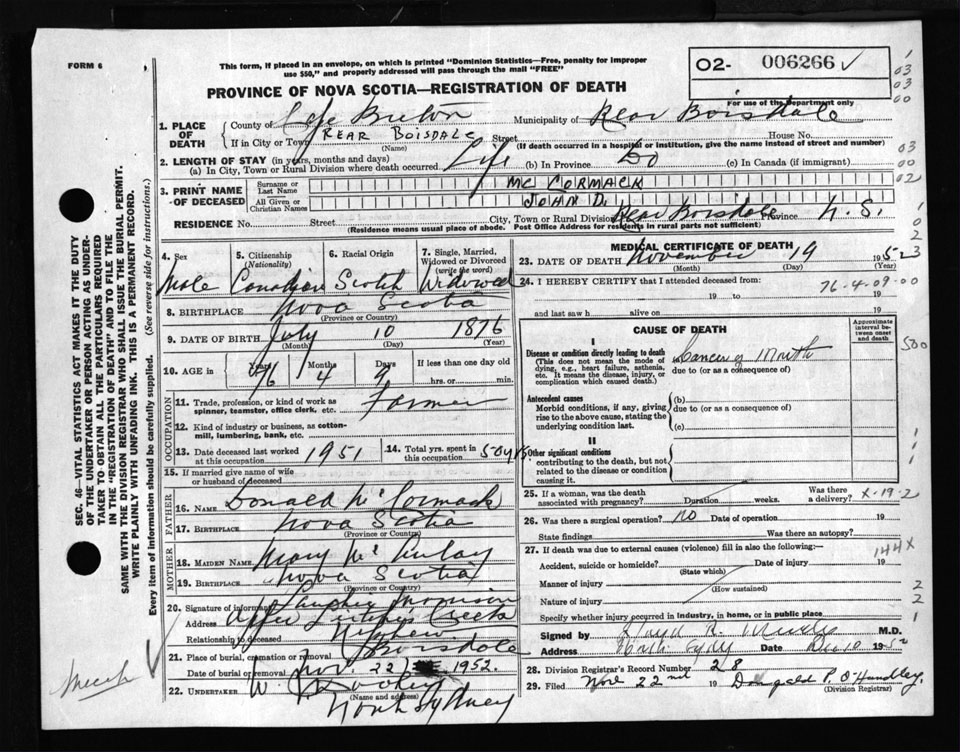 FORM 6
This form, if placed in an envelope, on which is printed "Dominion Statistics—Free, penalty for improper
use $50," and properly addressed will pass through the mail "FREE"
O2- 006266 ✓
PROVINCE OF NOVA SCOTIA—REGISTRATION OF DEATH
For use of the Department only
1. PLACE OF DEATH
County of Cape Breton Municipality of Rear Boisdale
If in City or Town REAR BOISDALE Street House No.
(Name) (If death occurred in a hospital or institution, give the name instead of street and number)
2. LENGTH OF STAY (in years, months and days)
(a) In City, Town or Rural Division where death occurred Life (b) In Province Do (c) In Canada (if immigrant)
3. PRINT NAME OF DECEASED
Surname or Last Name MC CORMACK
All Given or Christian Names JOHN D.
RESIDENCE No. Street City, Town or Rural Division Rear Boisdale Province N.S.
(Residence means usual place of abode. Post Office Address for residents in rural parts not sufficient)
4. Sex Male
5. Citizenship (Nationality) Canadian
6. Racial Origin Scotch
7. Single, Married, Widowed or Divorced (write the word) Widowed
8. BIRTHPLACE Nova Scotia
(Province or Country)
9. DATE OF BIRTH July 10 1876
(Month) (Day) (Year)
10. AGE in Years 76 Months 4 Days 9 If less than one day old
hrs. or min.
OCCUPATION
11. Trade, profession, or kind of work as spinner, teamster, office clerk, etc. Farmer
12. Kind of industry or business, as cotton-mill, lumbering, bank, etc.
13. Date deceased last worked at this occupation 1951
14. Total yrs. spent in this occupation 50 yrs
15. If married give name of wife or husband of deceased
FATHER
16. Name Donald McCormack
17. Birthplace Nova Scotia
(Province or Country)
MOTHER
18. Maiden Name Mary McKinlay
19. Birthplace Nova Scotia
(Province or Country)
20. Signature of informant
Address Upper Leitches Creek
Relationship to deceased Nephew
21. Place of burial, cremation or removal Boisdale
Date of burial or removal Nov. 22 1952.
22. UNDERTAKER W.
(Name and address)
North Sydney
MEDICAL CERTIFICATE OF DEATH
23. DATE OF DEATH November 19 1952
(Month) (Day) (Year)
24. I HEREBY CERTIFY that I attended deceased from:
76-4-09-00
19 to 19
and last saw h alive on 19
CAUSE OF DEATH
Approximate interval between onset and death
I
Disease or condition directly leading to death
(This does not mean the mode of dying, e.g., heart failure, asthenia, etc. It means the disease, injury, or complication which caused death.)
(a) Cancer of Mouth
due to (or as a consequence of)
Antecedent causes
Morbid conditions, if any, giving rise to the above cause, stating the underlying condition last.
(b)
due to (or as a consequence of)
(c)
II
Other significant conditions
contributing to the death, but not related to the disease or condition causing it.
25. If a woman, was the death associated with pregnancy? Duration weeks. Was there a delivery? X-19-2
26. Was there a surgical operation? no Date of operation 19
State findings Was there an autopsy?
27. If death was due to external causes (violence) fill in also the following:—
144X
Accident, suicide or homicide? Date of injury 19
(State which)
Manner of injury
(How sustained)
Nature of injury
Specify whether injury occurred in industry, in home, or in public place
Signed by M.D.
Address North Sydney Date Dec 10 1952
28. Division Registrar's Record Number 28
29. Filed Nov 22nd 19 Donald P. O'Handley
(Division Registrar)
SEC. 46—VITAL STATISTICS ACT MAKES IT THE DUTY
OF THE UNDERTAKER OR PERSON ACTING AS UNDER-
TAKER TO OBTAIN ALL THE PARTICULARS REQUIRED
IN THE "REGISTRATION OF DEATH" AND TO FILE THE
SAME WITH THE DIVISION REGISTRAR WHO SHALL ISSUE THE BURIAL PERMIT.
WRITE PLAINLY WITH UNFADING INK. THIS IS A PERMANENT RECORD.
Every item of information should be carefully supplied. (See reverse side for instructions.)